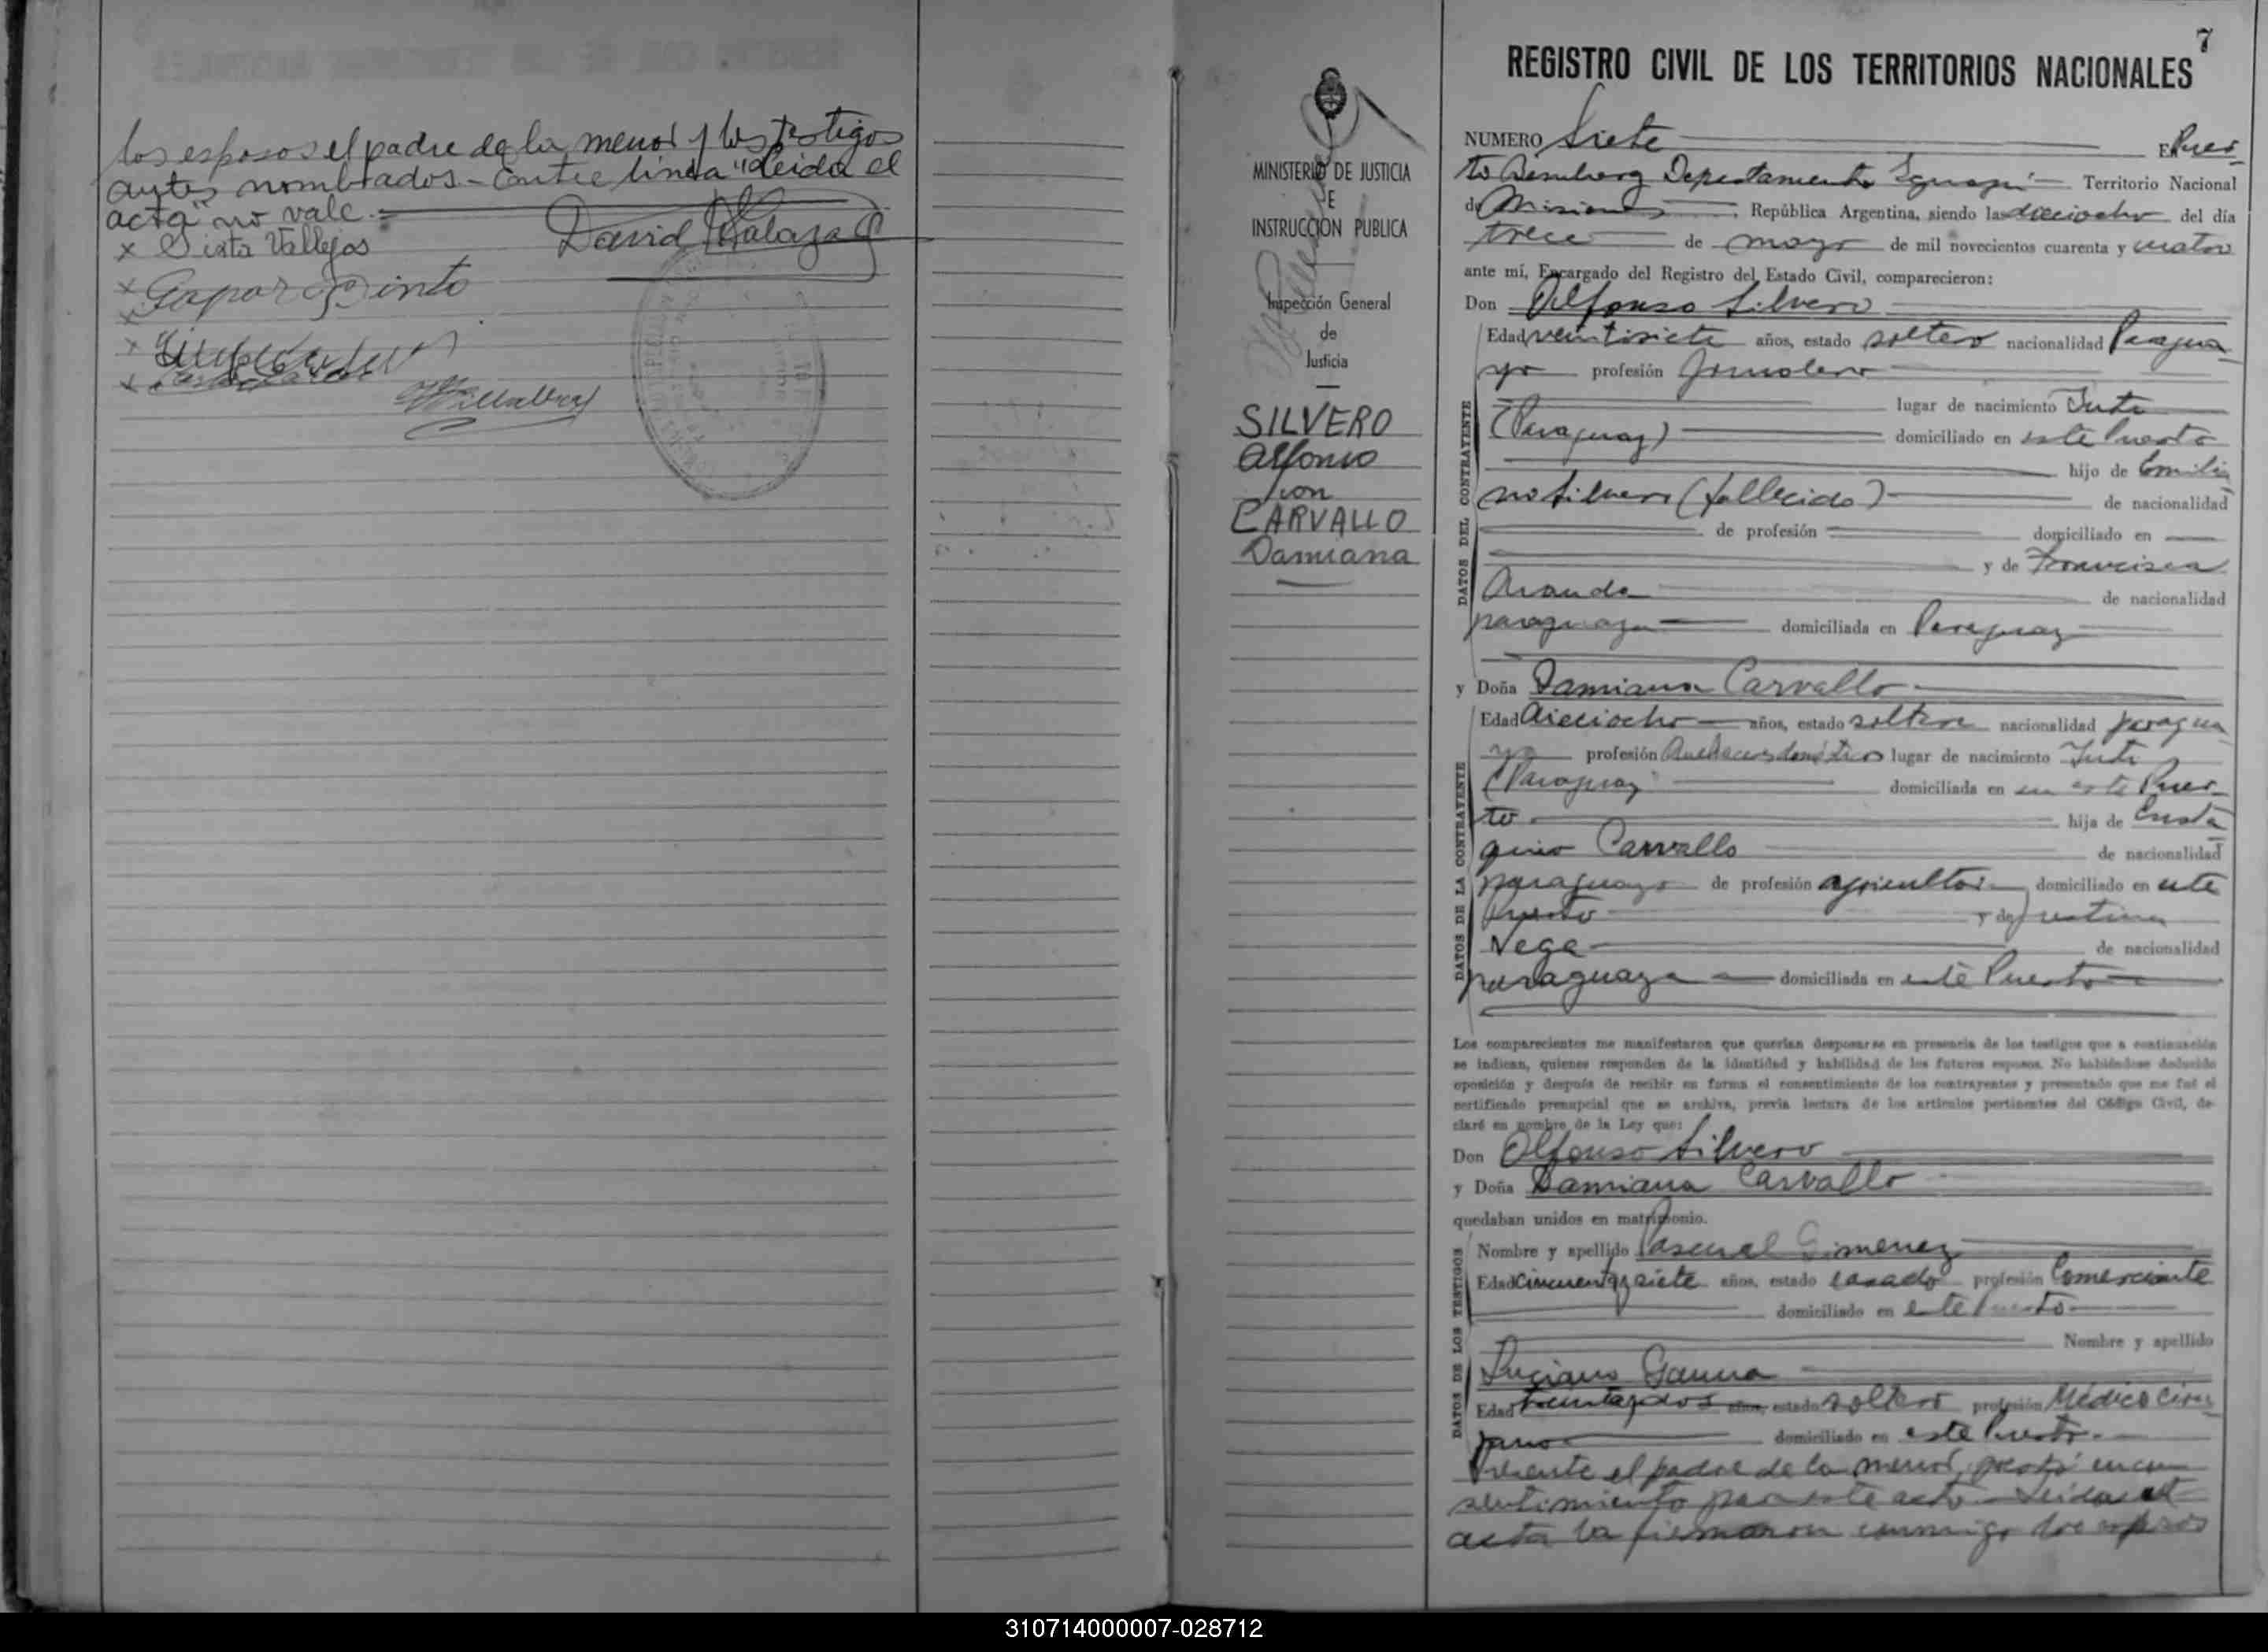 los esposos el padre de la menor y los testigos
antes nombrados - Entre línea "Leida el
acta" no vale. -
x Sixta Vallejos
David
x Gaspar Pinto
x
x
x
Villalba
7
REGISTRO CIVIL DE LOS TERRITORIOS NACIONALES
MINISTERIO DE JUSTICIA
E
INSTRUCCION PUBLICA
Inspección General
de
Justicia
SILVERO
Alfonso
con
CARVALLO
Damiana
NUMERO Siete En Puer-
to Bemberg Departamento Iguazú Territorio Nacional
de Misiones República Argentina, siendo las dieciocho del día
trece de mayo de mil novecientos cuarenta y cuatro
ante mí, Encargado del Registro del Estado Civil, comparecieron:
Don Alfonso Silvero
Edad veintisiete años, estado soltero nacionalidad Paragua
yo profesión Jornalero
lugar de nacimiento Yuti
(Paraguay) domiciliado en este Puerto
hijo de Emilia
no Silvero (fallecido) de nacionalidad
de profesión domiciliado en
y de Francisca
Aranda de nacionalidad
paraguaya domiciliada en Paraguay
y Doña Damiana Carvallo
Edad dieciocho años, estado soltera nacionalidad paragua
ya profesión Quehaceres domésticos lugar de nacimiento Yuti
(Paraguay domiciliada en en este Puer-
to hija de Eusta
quio Carvallo de nacionalidad
paraguayo de profesión agricultor domiciliado en este
Puerto y de Justina
Vega de nacionalidad
paraguaya domiciliada en este Puerto
DATOS DEL CONTRAYENTE
DATOS DE LA CONTRAYENTE
Los comparecientes me manifestaron que querían desposarse en presencia de los testigos que a continuación
se indican, quienes responden de la identidad y habilidad de los futuros esposos. No habiéndose deducido
oposición y después de recibir en forma el consentimiento de los contrayentes y presentado que me fué el
certificado prenupcial que se archiva, previa lectura de los artículos pertinentes del Código Civil, de-
claré en nombre de la Ley que:
Don Alfonso Silvero
y Doña Damiana Carvallo
quedaban unidos en matrimonio.
Nombre y apellido Pascual Gimenez
Edad Cincuenta y siete años, estado casado profesión Comerciante
domiciliado en este Puerto
Nombre y apellido
Luciano Gauna
Edad treinta y dos años, estado soltero profesión Médico Ciru
jano domiciliado en este Puerto.
DATOS DE LOS TESTIGOS
Presente el padre de la menor, prestó su con
sentimiento para este acto - Leida el
acta la firmaron conmigo los esposos
310714000007-028712